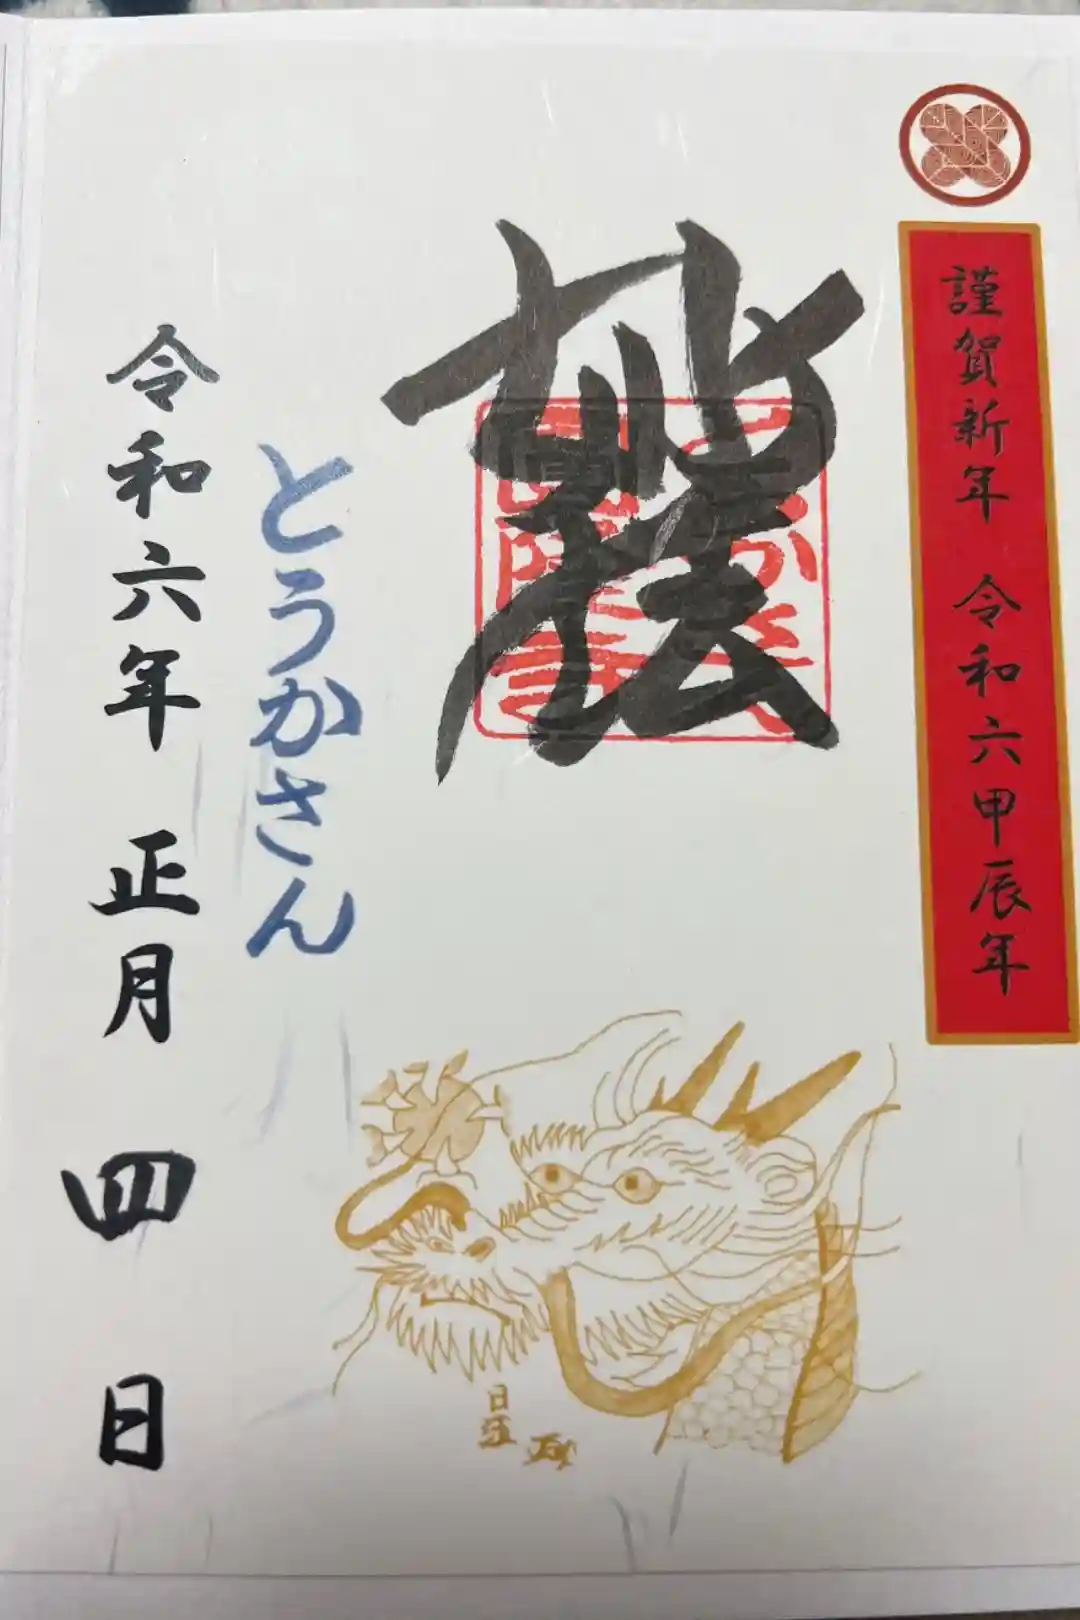 謹賀新年 令和六甲辰年
妙法
とうかさん
令和六年 正月 四日